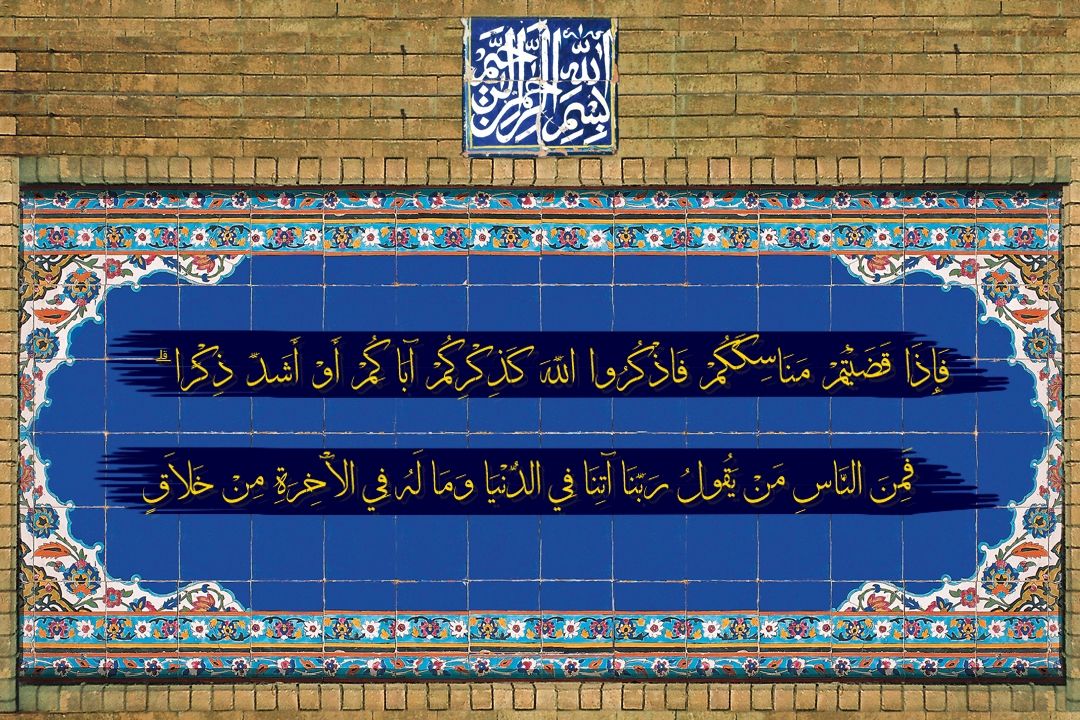 بِسْمِ اللهِ الرَّحْمٰنِ الرَّحِيمِ
فَإِذَا قَضَيْتُمْ مَنَاسِكَكُمْ فَاذْكُرُوا اللَّهَ كَذِكْرِكُمْ آبَاكُمْ أَوْ أَشَدَّ ذِكْرًا ۗ
فَمِنَ النَّاسِ مَنْ يَقُولُ رَبَّنَا آتِنَا فِي الدُّنْيَا وَمَا لَهُ فِي الْآخِرَةِ مِنْ خَلَاقٍ